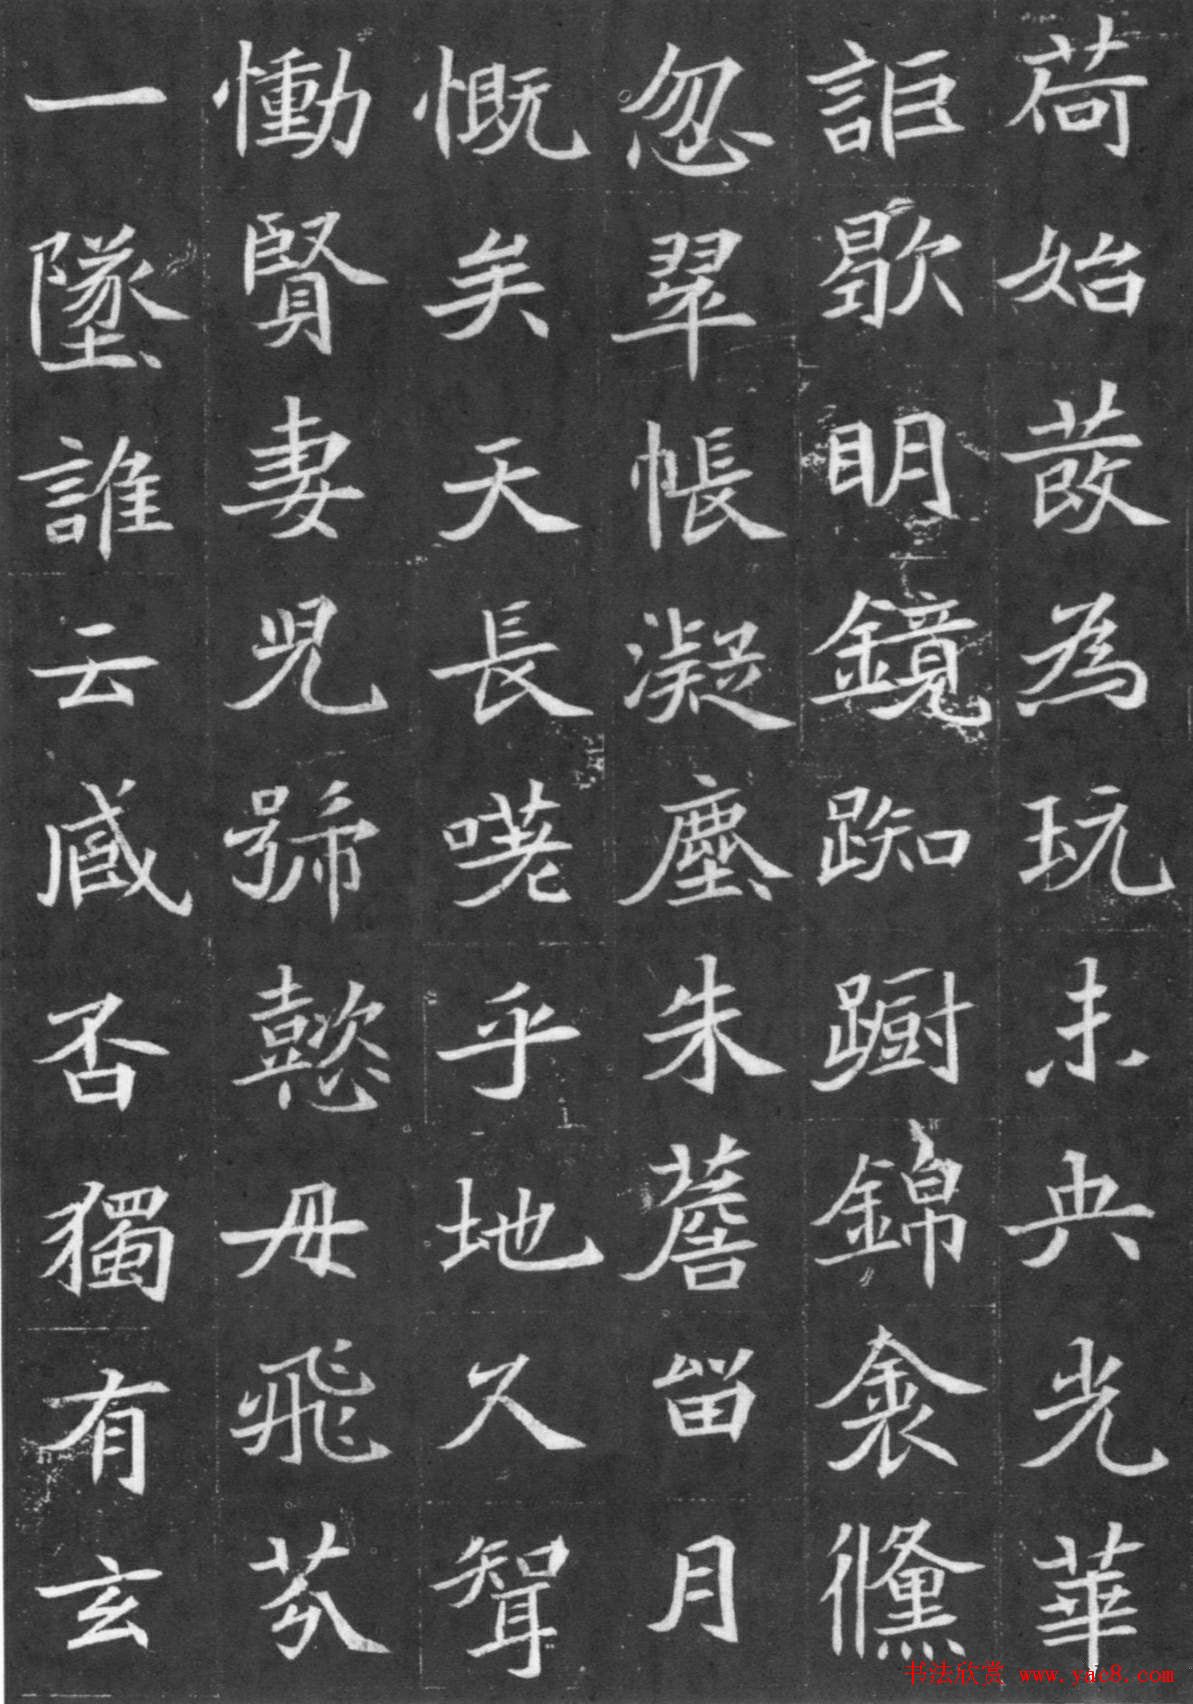 荷始蕟為玩未央光華
詎歇明鏡踟躕錦衾儵
忽翠帳凝塵朱簷留月
慨矣天長嗟乎地久聟
慟賢妻兒號懿母飛芬
一墬誰云臧否獨有玄
书法欣赏 www.yac8.com